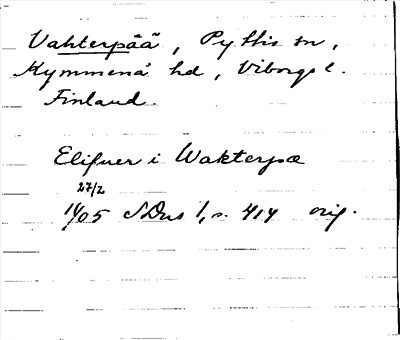 Vahterpää, Pyttis sn,
Kymmenä hd, Viborgs l.
Finland.
Elifuer i Wakterpæ
27/2
1405 SDns 1, s. 414 orig.